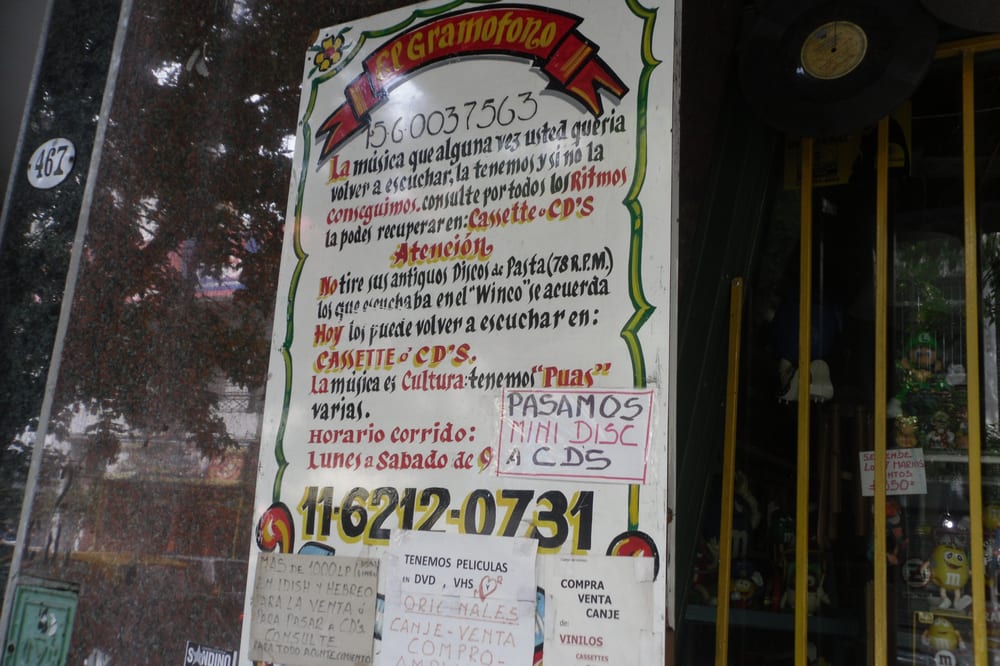 El Gramofono
15.6.0037563
467
La música que alguna vez usted queria
volver a escuchar, la tenemos y si no la
conseguimos. consulte por todos los Ritmos
la podes recuperar en: Cassette o CD'S
Atención
No tire sus antiguos Discos de Pasta (78 R.P.M.)
los que escuchaba en el "Winco" se acuerda
Hoy los puede volver a escuchar en:
CASSETTE o CD'S.
La música es Cultura: tenemos "Puas"
varias.
Horario corrido:
Lunes a Sabado de 9
PASAMOS
MINI DISC
A CD'S
11-6212-0731
MAS DE 1000 LP
EN IDISH Y HEBREO
PARA LA VENTA ó
PARA PASAR A CD's
CONSULTE
PARA TODO ACONTECIMIENTO
TENEMOS PELICULAS
en DVD, VHS
ORIGINALES
CANJE-VENTA
COMPRO-
COMPRA
VENTA
CANJE
de:
VINILOS
CASSETTES
SANDINO
SE VENDE
LOS 7 MARIAS